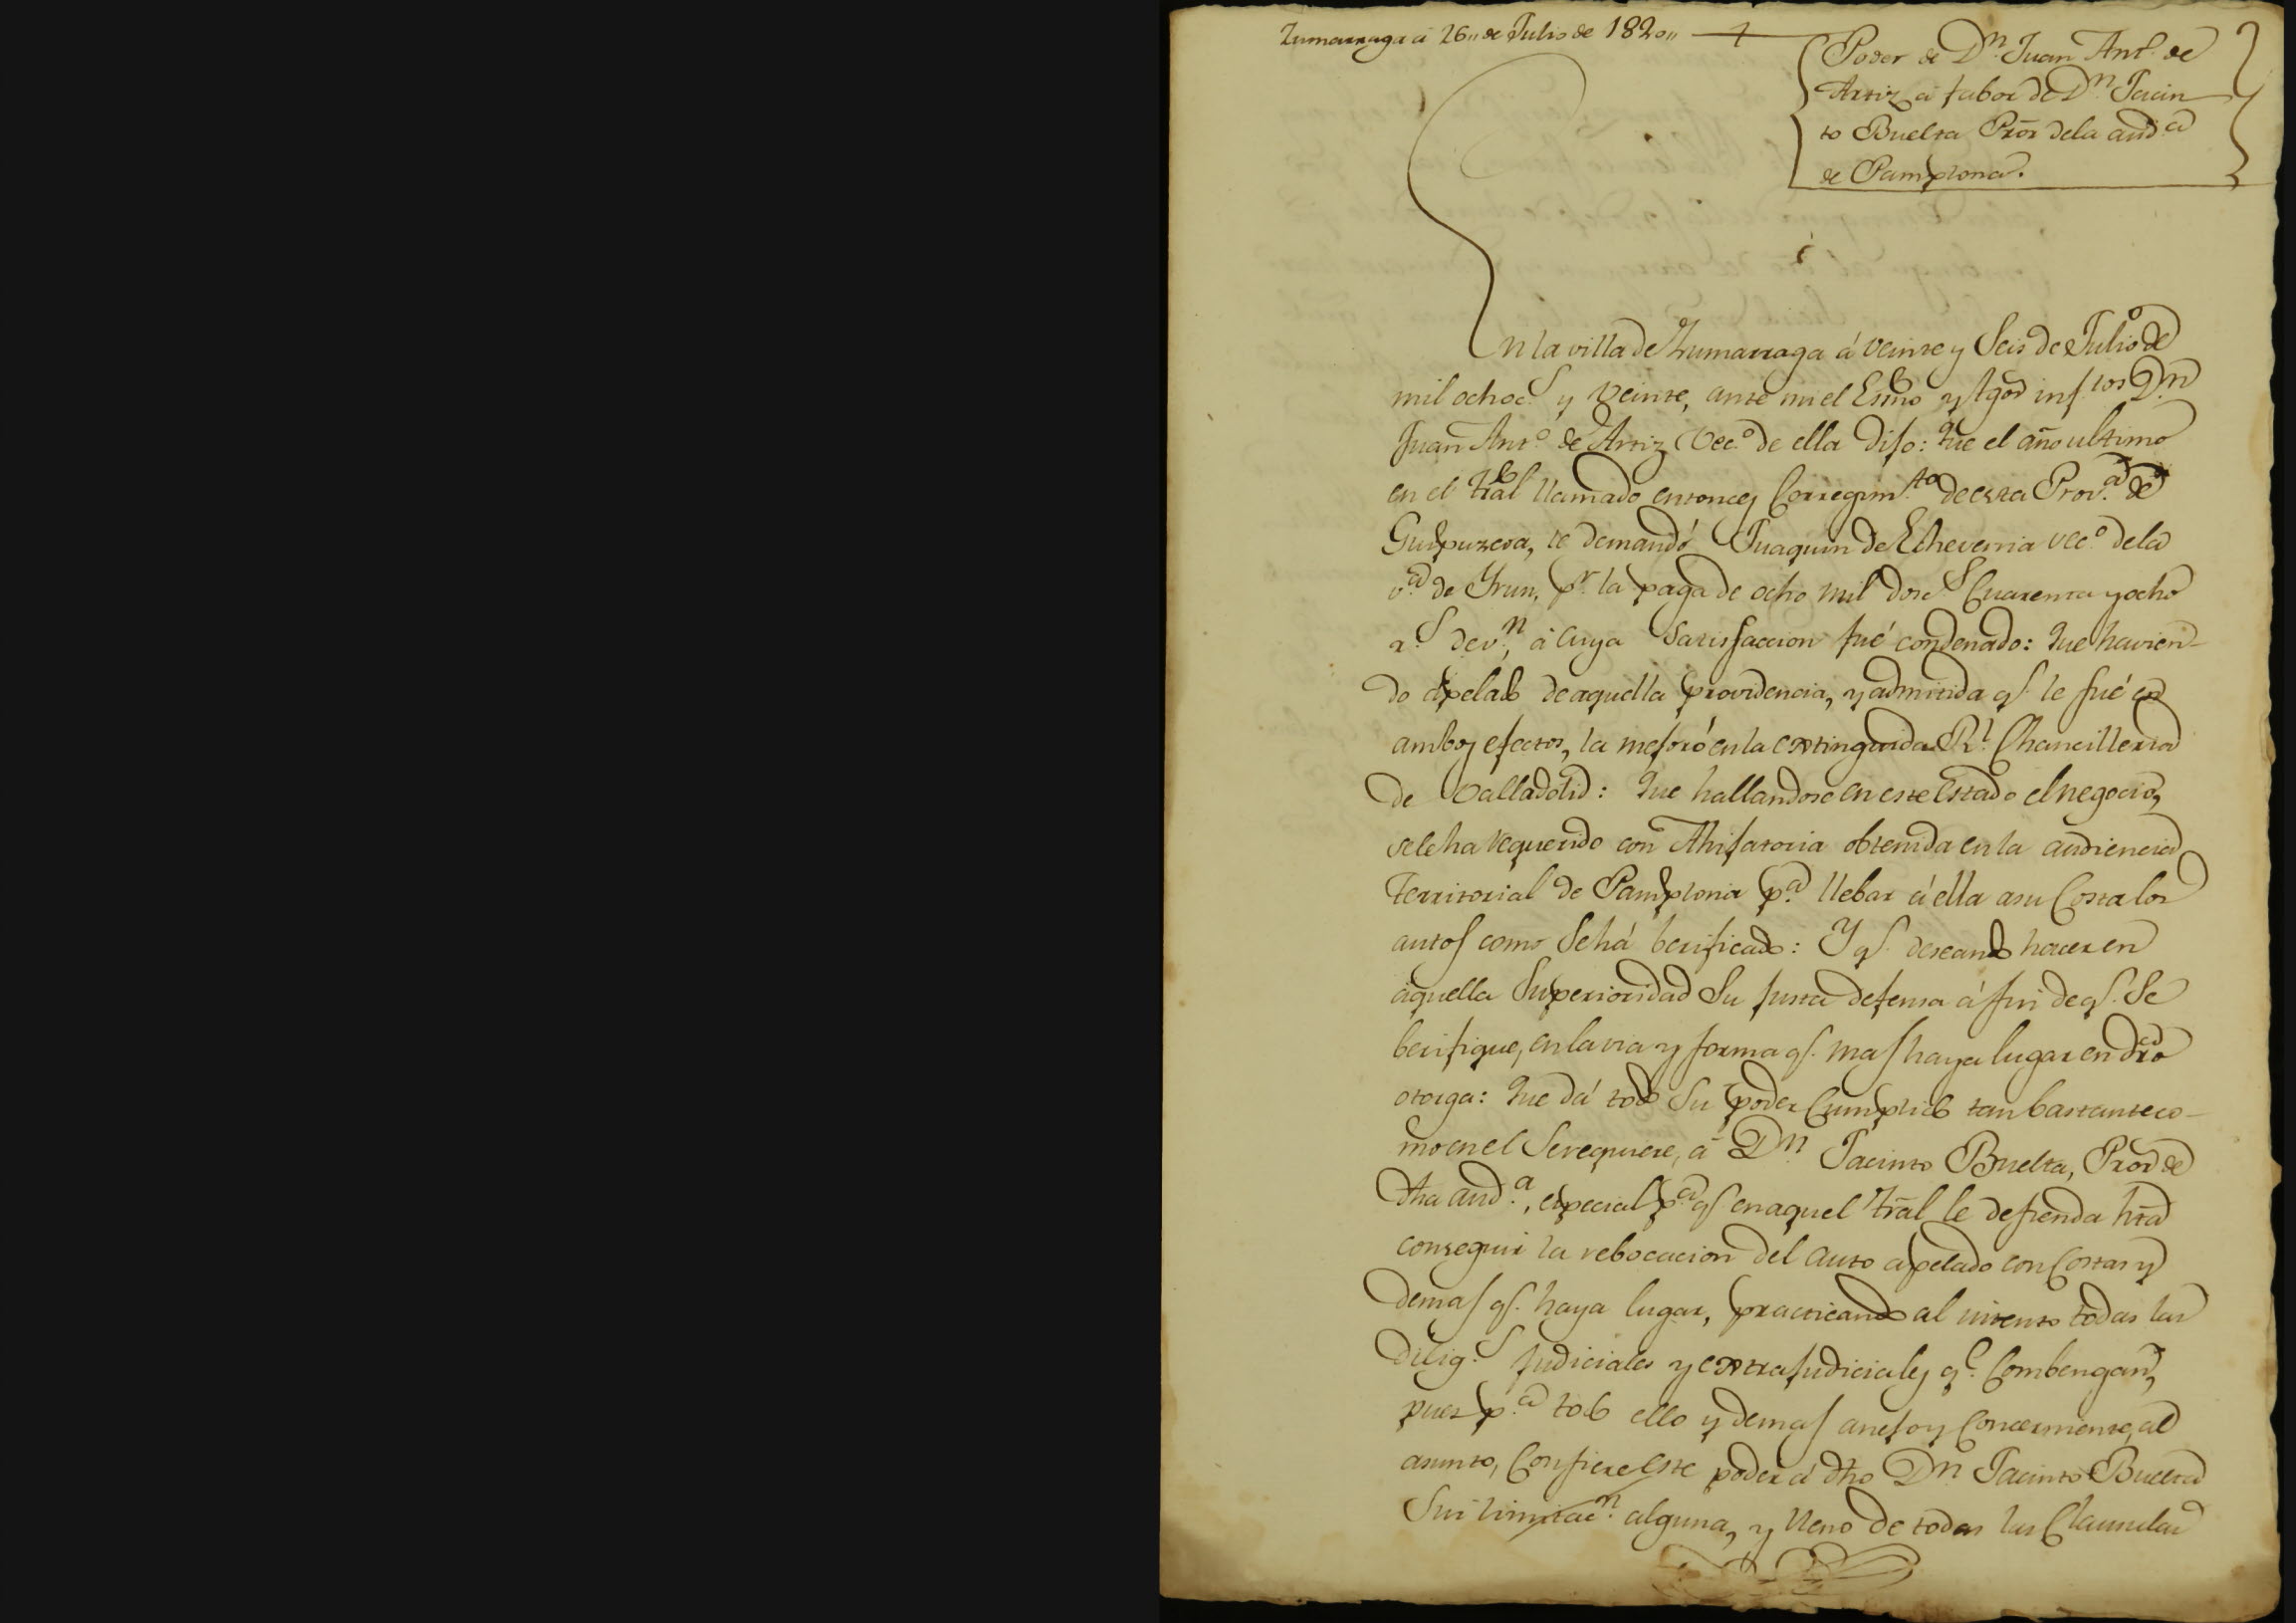 Zumarraga á 26,, de Julio de 1820,,
Poder de Dn. Juan Anto. de
Artiz á fabor de Dn. Jacin
to Buelta Prõr dela audª
de Pamplona.
En la villa de Zumarraga á veinte y Seis de Julio de
mil ochocs. y veinte, ante mi el Esnõ y tgos infros Dn.
Juan Anto. de Artiz Veco. de ella Dijo: Que el año ultimo
en el trãl llamado entonces Corregimto. de esta Provª. de
Guipuzcoa, le demandó Juaquin de Echeverria veco. dela
vª. de Yrun, pr. la paga de ocho mil doscs. Cuarenta y ocho
rs. de vn., á cuya Satisfaccion fué condenado: Que havien-
do apelado de aquella providencia, y admitida q. le fué en
ambos efectos, la mejoró en la extinguida Rl. Chancilleria
de Valladolid: Que hallandose en este Estado el negocio,
sele ha requerido con Thisatoria obtenida en la audiencia
territorial de Pamplona pª. llebar á ella asu Costa los
autos como Sehá berificado: Y q. deseando hacer en
aquella Superioridad Su justa defensa á fin de q. Se
berifique, en la via y forma q. mas haya lugar en dro
otorga: Que dá todo Su poder Cumplido tan bastante co-
mo en el Se requiere, á Dn. Jacinto Buelta, Prõr de
dha audª., especial pª. q. en aquel trãl le defienda htã
conseguir la rebocacion del auto apelado con Costas y
demas q. haya lugar, practicando al intento todas las
diligs. judiciales y extrajudiciales q. Combengan,
pues pª. todo ello y demas anejo y Concerniente, al
asunto, Confiere este poder á dho Dn. Jacinto Buelta
Sin limitacn. alguna, y lleno de todas las Clausulas